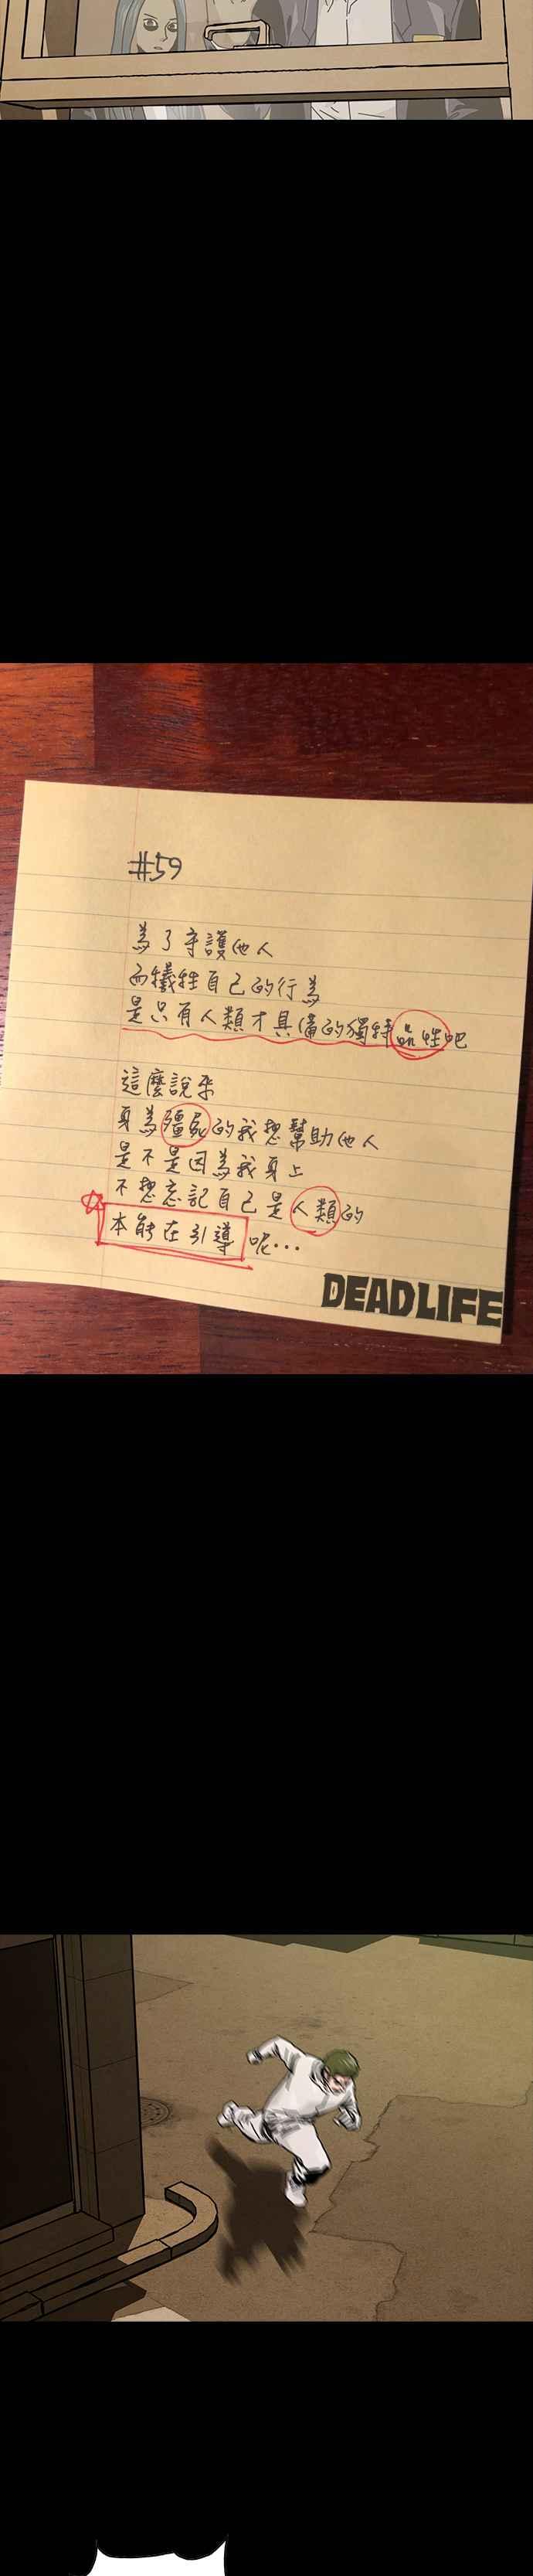 #59
為了守護他人
而犧牲自己的行為
是只有人類才具備的獨特品性吧
這麼說來
身為殭屍的我想幫助他人
是不是因為我身上
不想忘記自己是人類的
本能在引導呢…
DEADLIFE